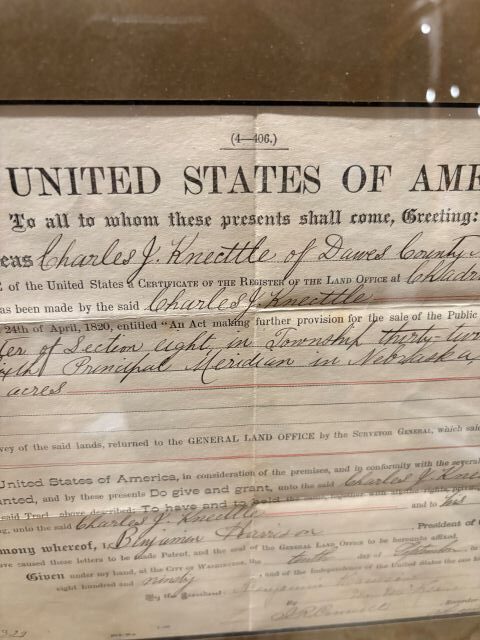 (4—406.)
UNITED STATES OF AME
To all to whom these presents shall come, Greeting:
eas Charles J. Knecttle of Dawes County
of the United States a CERTIFICATE OF THE REGISTER OF THE LAND OFFICE AT Chadr
as been made by the said Charles J. Knecttle
24th of April, 1820, entitled "An Act making further provision for the sale of the Public
ter of Section eight in Township thirty-two
ixth Principal Meridian in Nebraska,
acres
vey of the said lands, returned to the GENERAL LAND OFFICE by the SURVEYOR GENERAL, which said
United States of America, in consideration of the premises, and in conformity with the several
anted, and by these presents Do give and grant, unto the said Charles J. Kne
said Tract above described; To have and to hold the same, together with all the rights,
ng, unto the said Charles J. Knecttle and to his
mony whereof, I, Benjamin Harrison President of
ave caused these letters to be made Patent, and the seal of the GENERAL LAND OFFICE to be hereunto affixed.
Given under my hand, at the CITY OF WASHINGTON, the tenth day of September
eight hundred and ninety, and of the Independence of the United States the one
By the President: Benjamin Harrison
By